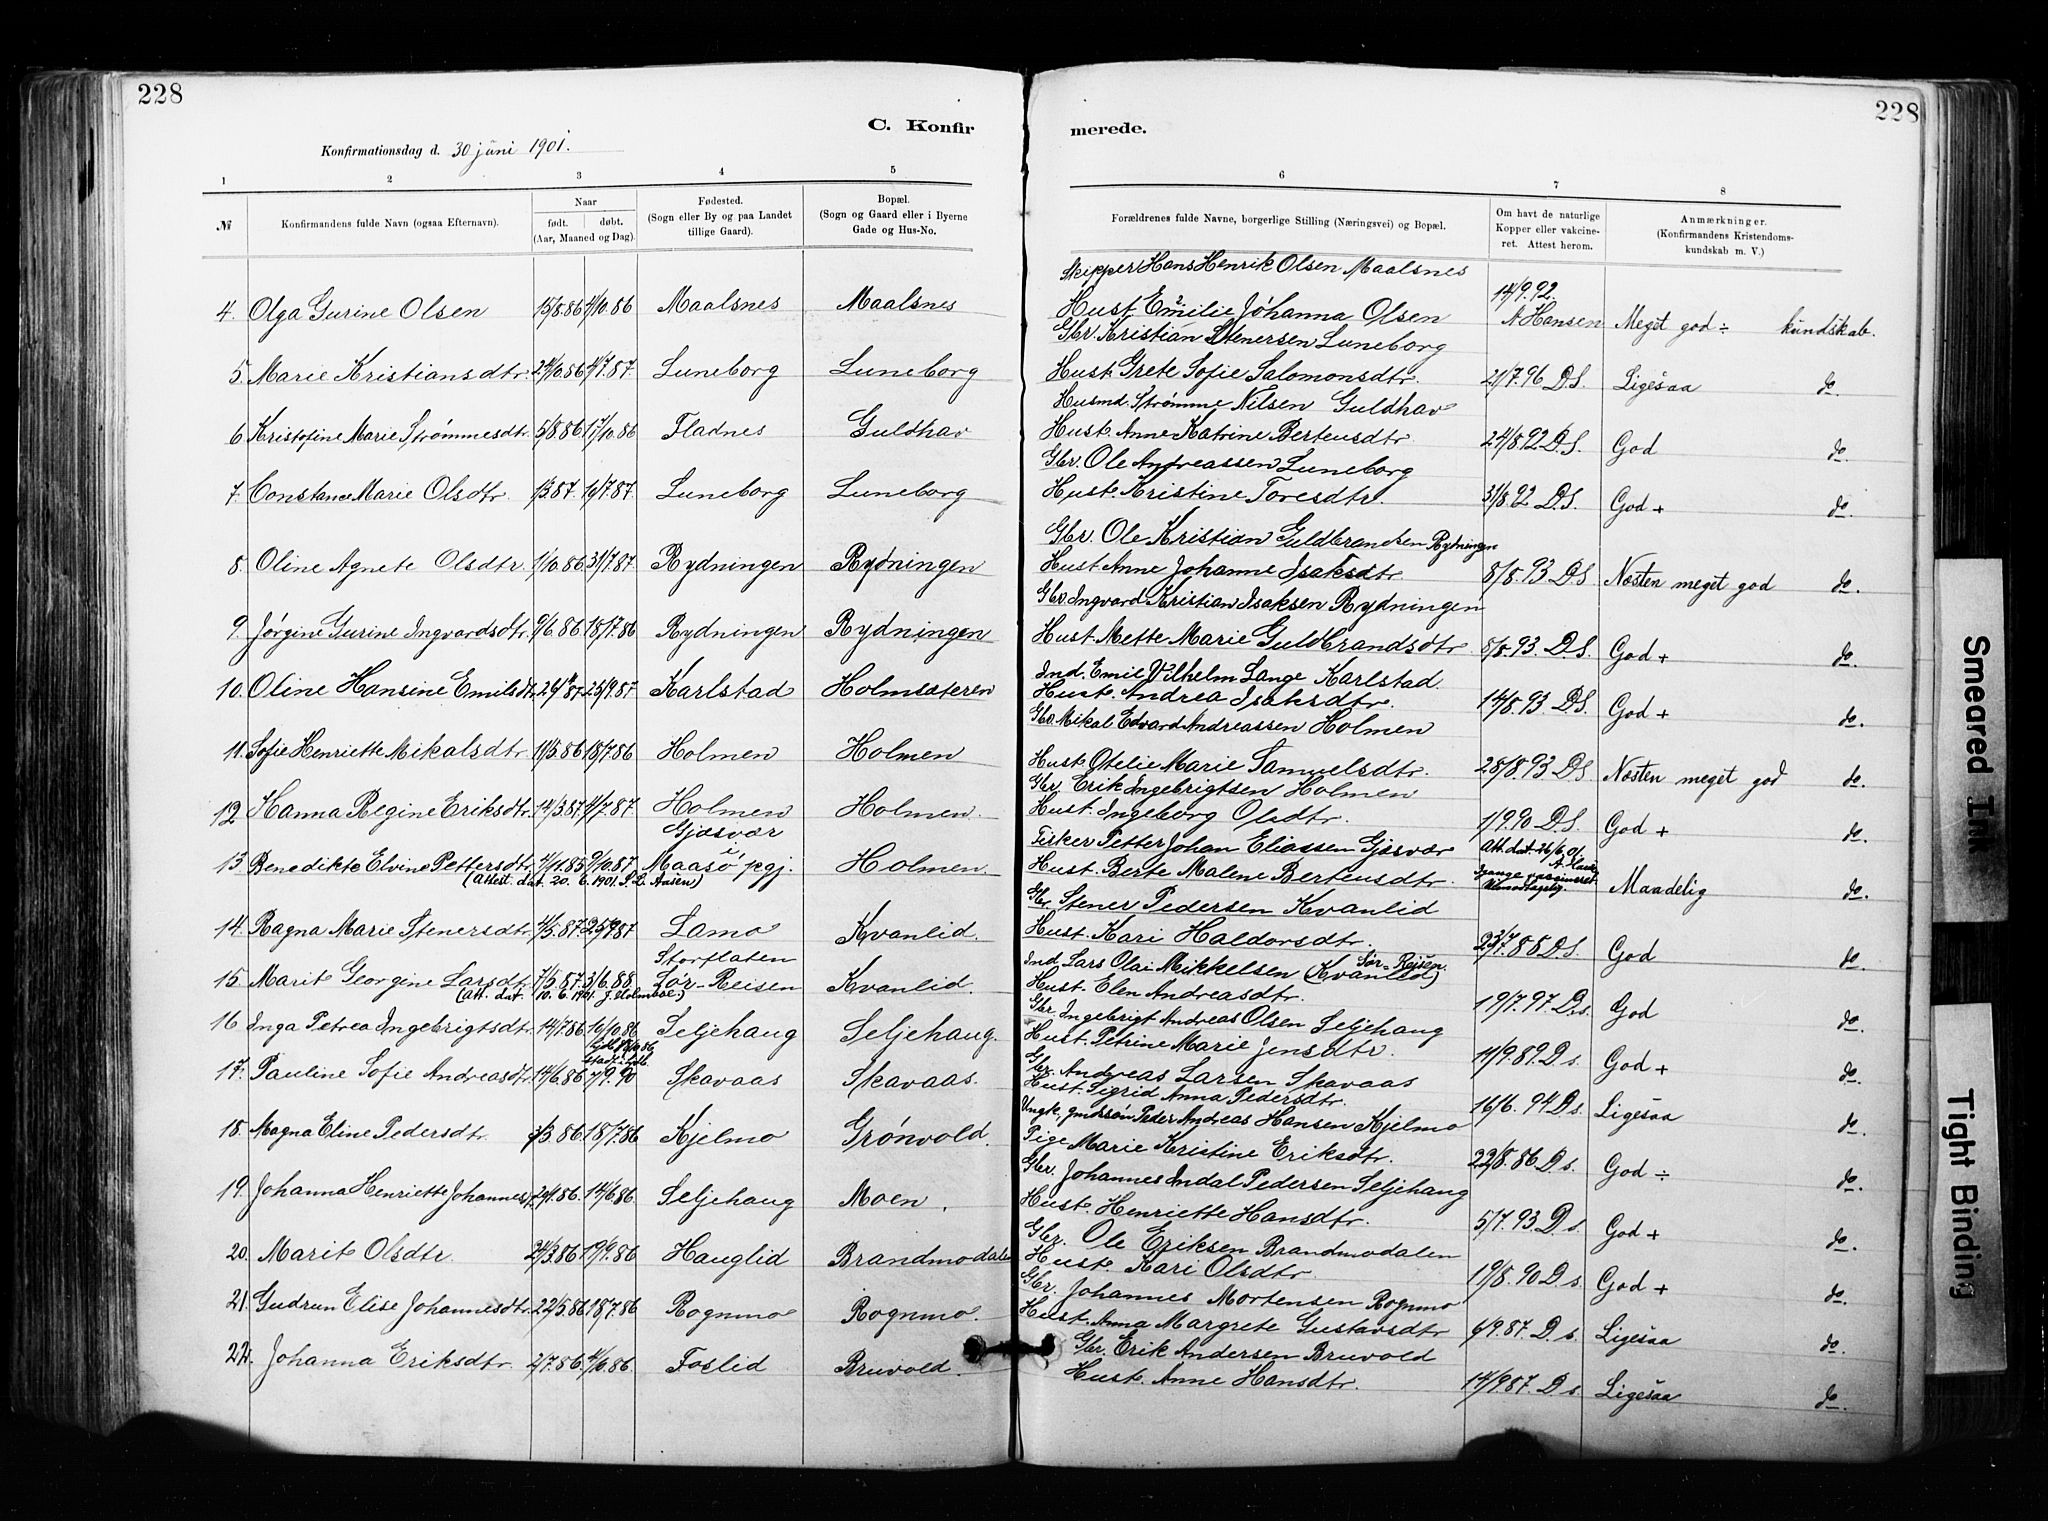 228
228
C. Konfir
merede.
Konfirmationsdag d. 30 juni 1901.
1 2 3 4 5 6 7 8
№
Konfirmandens fulde Navn (ogsaa Efternavn).
Naar
født. døbt.
(Aar, Maaned og Dag).
Fødested.
(Sogn eller By og paa Landet
tillige Gaard).
Bopæl.
(Sogn og Gaard eller i Byerne
Gade og Hus-No.
Forældrenes fulde Navne, borgerlige Stilling (Næringsvei) og Bopæl.
Om havt de naturlige
Kopper eller vakcine-
ret. Attest herom.
Anmærkninger.
(Konfirmandens Kristendoms-
kundskab m. V.)
Skipper Hans Henrik Olsen Maalsnes
4. Olga Gurine Olsen 15/8.86 4/10.86 Maalsnes Maalsnes Hust. Emilie Johanna Olsen 14/9.92. A Hansen Meget god ÷ kundskab.
Gbr. Kristian Stenersen Luneborg
5. Marie Kristiansdtr. 24/10.86 4/7.87 Luneborg Luneborg Hust. Grete Sofie Salomonsdtr. 21/7.96 D.S. Ligesaa do.
Husmd. Strømme Nilsen Guldhav
6 Kristofine Marie Strømmesdtr. 5/8.86 17/10.86 Fladnes Guldhav Hust. Anne Katrine Bertensdtr. 24/8.92 D.S. God do.
Gbr. Ole Andreassen Luneborg
7. Constance Marie Olsdtr. 1/3.87. 10/7.87. Luneborg Luneborg Hust. Kristine Toresdtr. 31/8.92 D.S. God + do.
Gbr. Ole Kristian Guldbrandsen Rydningen
8. Oline Agnete Olsdtr. 1/10.86 31/7.87 Rydningen Rydningen Hust Anne Johanne Isaksdtr. 8/8.93 D.S Næsten meget god do.
Gbr. Ingvard Kristian Isaksen Rydningen
9. Jørgine Gurine Ingvardsdtr. 9/6.86 18/7.86 Rydningen Rydningen Hust. Mette Marie Guldbrandsdtr. 8/8.93. D.S. God + do.
Ind. Emil Vilhelm Lange Karlstad.
10. Oline Hansine Emilsdtr. 25/9.87 Karlstad Holmsæteren Hust. Andrea Isaksdtr. 14/8.93. D.S. God + do.
Gbr. Mikal Edvard Andreassen Holmen
11. Sofie Henriette Mikalsdtr. 11/5.86 18/7.86 Holmen Holmen Hust. Otelie Marie Samuelsdtr. 28/8.93 D.S Næsten meget god do.
Gbr. Erik Ingebrigtsen Holmen
12 Hanna Regine Eriksdtr. 14/3.87 4/7.87. Holmen Holmen. Hust. Ingeborg Olsdtr. 1/9.90 D.S. God + do.
Gjøsvær i Fisker Petter Johan Eliassen Gjøsvær Att. dat. 26/6.01
13. Benedikte Elvine Pettersdtr. 4/11.85 9/10.87 Maasö pgj. Holmen. Hust. Berte Malene Bertensdtr. Maadelig do.
(Attest. dat. 20. 6. 1901.
Gbr. Stener Pedersen Kvanlid
14. Ragna Marie Stenersdtr. 4/5.87. 25/9.87 Lomo Kvanlid. Hust. Kari Haldorsdtr. 23/7.86 D.S. God do.
Storflaten Ind. Lars Olai Mikkelsen Sør-Reisen (Kvanlid)
15. Marit Georgine Larsdtr. 7/5.87. 3/6.88. Sør-Reisen Kvanlid. Hust. Elen Andreasdtr. 19/7.97. D.s. God do.
(Att. dat. 10. 6. 1901. J. Holmboe.)
Gbr. Ingebrigt Andreas Olsen Seljehaug
16 Inga Petrea Ingebrigtsdtr. 14/7.86 16/10.86 Seljehaug Seljehaug. Hust. Petrine Marie Jensdtr. 14/9.89. D s. God + do.
Gbr. Andreas Larsen Skavaas
17. Pauline Sofie Andreasdtr. 14/6.86 7/9.90 Skavaas Skavaas. Hust. Sigrid Anna Pedersdtr. 16/6. 94 D s. Ligesaa do.
Ungk. gmdssøn Peder Andreas Hansen Kjelmo
18. Magna Eline Pedersdtr. 86. 18/7.86 Kjelmo Grønvold. Pige Marie Kristine Eriksdtr. 22/8.86 D s. God ÷ do.
Gbr. Johannes Indal Pedersen Seljehaug
19. Johanna Henriette Johannes 86. 14/6.86 Seljehaug Moen. Hust. Henriette Hansdtr. 5/7.93. D s. God + do.
Gbr. Ole Eriksen Brandmodalen
20. Marit Olsdtr. 24/3.86 19/9.86 Hauglid Brandmodalen Hust. Kari Olsdtr. 19/8.90 D s. God + do.
Gbr. Johannes Mortensen Rognmo
21. Gudrun Elise Johannesdtr. 22/5.86 18/7.86 Rognmo Rognmo. Hust. Anna Margrete Gustavsdtr. 6/9.87. D. s. Ligesaa do.
Gbr. Erik Andersen Bruvold
22. Johanna Eriksdtr. 2/7.86 Foslid Bruvold. Hust. Anne Hansdtr. 14/9.87. D s Ligesaa do.
Smeared Ink
Tight Binding